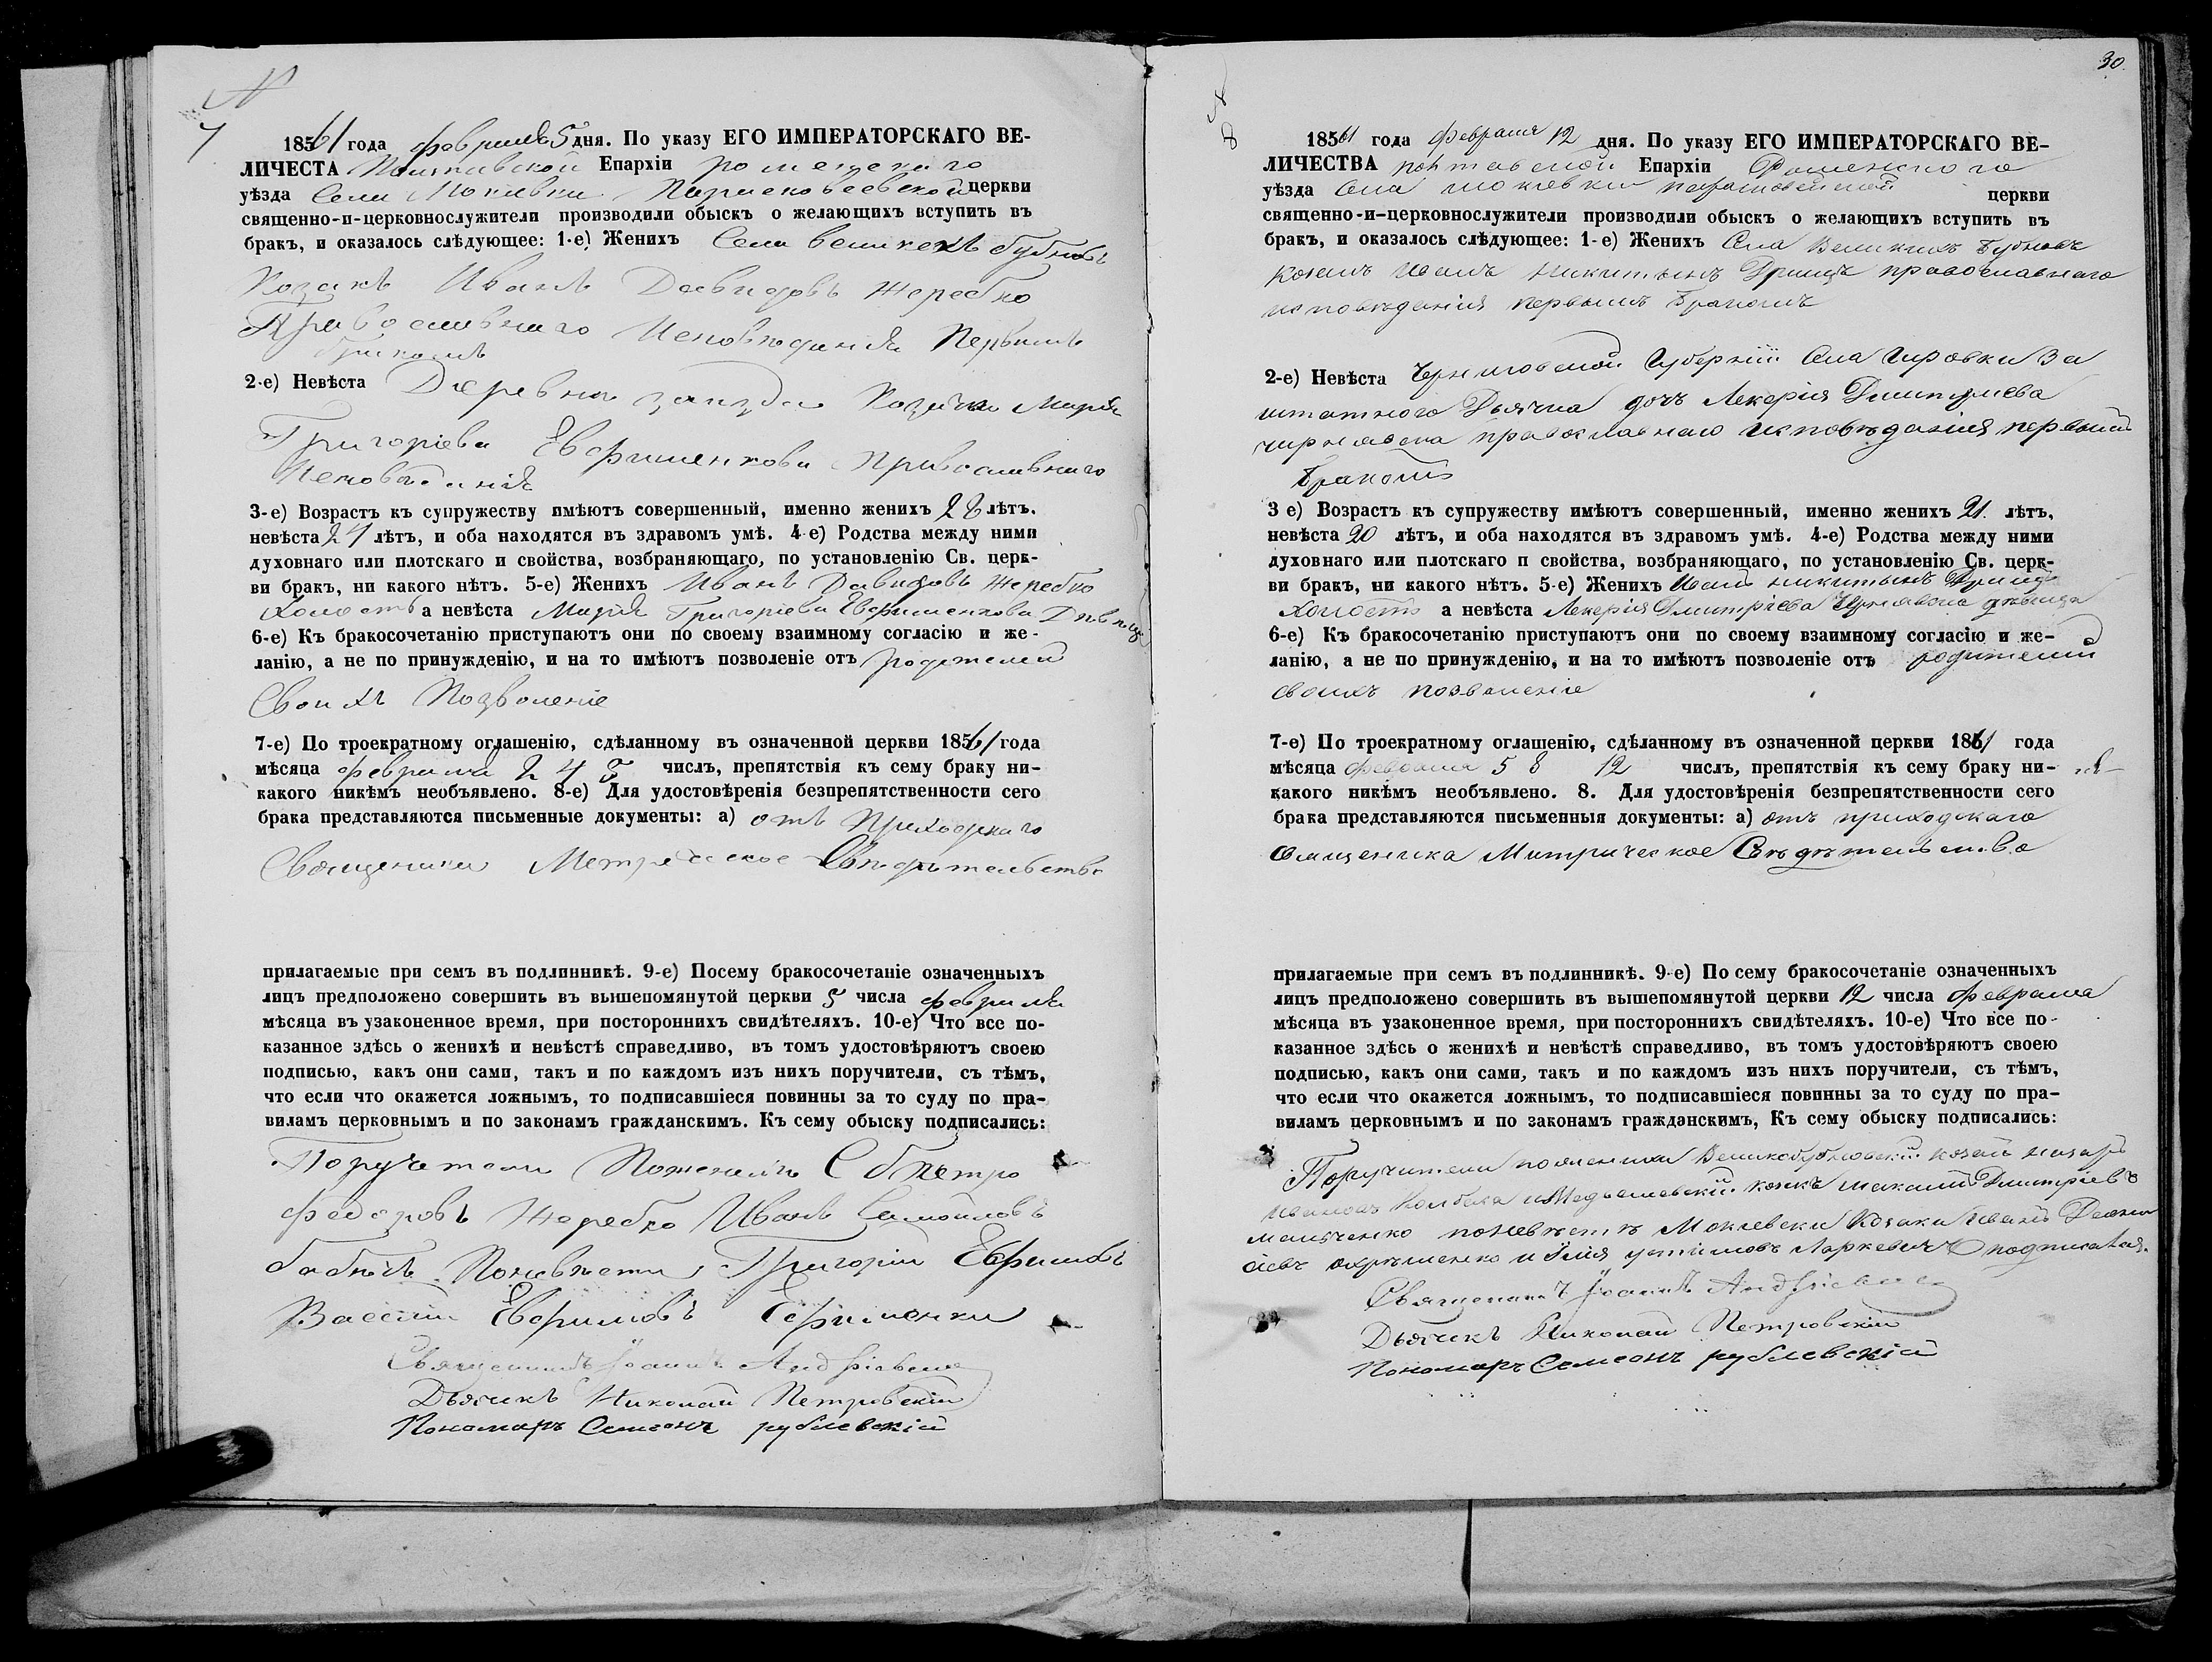 7
1861 года февраля 5 дня. По указу ЕГО ИМПЕРАТОРСКАГО ВЕ-
ЛИЧЕСТА Полтавской Епархіи роменскаго
уѣзда Села Мокіевки Параскевеевской церкви
священно-и-церковнослужители производили обыскъ о желающихъ вступить въ
бракъ, и оказалось слѣдующее: 1-е) Женихъ Села Великехъ бубновъ
Козакъ Иванъ Давидовъ Жеребко
Православнаго Исповѣданія Первымъ
бракомъ
2-е) Невѣста Деревни Козачка Марія
Григоріева Евфименкова Православнаго
Исповеданія
3-е) Возрастъ къ супружеству имѣютъ совершенный, именно женихъ лѣтъ.
невѣста лѣтъ, и оба находятся въ здравомъ умѣ. 4-е) Родства между ними
духовнаго или плотскаго и свойства, возбраняющаго, по установленію Св. церк-
ви бракъ, ни какого нѣтъ. 5-е) Женихъ Иванъ Давидовъ Жеребко
Холостъ а невѣста Марія Григоріева Евфименкова Дѣвица
6-е) Къ бракосочетанію приступаютъ они по своему взаимному согласію и же-
ланію, а не по принужденію, и на то имѣютъ позволеніе отъ родителей
Своихъ Позволеніе
7-е) По троекратному оглашенію, сдѣланному въ означенной церкви 1861 года
мѣсяца февраля 2 4 5 числъ, препятствія къ сему браку ни-
какого никѣмъ необъявлено. 8-е) Для удостовѣренія безпрепятственности сего
брака представляются письменные документы: а) отъ Приходскаго
Священика Метрическое Свидѣтельство
прилагаемые при семъ въ подлинникѣ. 9-е) Посему бракосочетаніе означенныхъ
лицъ предположено совершить въ вышепомянутой церкви 5 числа февраля
мѣсяца въ узаконенное время, при постороннихъ свидѣтеляхъ. 10-е) Что все по-
казанное здѣсь о женихѣ и невѣстѣ справедливо, въ томъ удостовѣряютъ своею
подписью, какъ они сами, такъ и по каждомъ изъ нихъ поручители, съ тѣмъ,
что если что окажется ложнымъ, то подписавшіеся повинны за то суду по пра-
виламъ церковнымъ и по законамъ гражданскимъ. Къ сему обыску подписались:
Поручатели Поженихъ Петро
Федоровъ Жеребко Иванъ Самойловъ
Поневѣсти Григорій Евфимовъ
Василій Евфимовъ Ефименки
Священникъ Іоаннъ Андріевскій
Дьячикъ Николай Петровскій
Пономарь Семеонъ рублевскій
30.
8
1861 года Февраля 12 дня. По указу ЕГО ИМПЕРАТОРСКАГО ВЕ-
ЛИЧЕСТВА полтавской Епархіи Роменского
уѣзда Села мокіевки параскевеевской церкви
священно-и-церковнослужители производили обыскъ о желающихъ вступить въ
бракъ, и оказалось слѣдующее: 1-е) Женихъ Села Великихъ Бубновъ
Козакъ Иванъ Никитынъ православнаго
исповѣданія первымъ бракомъ
2-е) Невѣста Черниговской Губерніи Села Гировки За
штатного Дьячка дочь Лекерія Димитріева
чернявска православнаго исповѣданія первымъ
Бракомъ
3 е) Возрастъ къ супружеству имѣютъ совершенный, именно женихъ 21. лѣтъ,
невѣста 20 лѣтъ, и оба находятся въ здравомъ умѣ. 4-е) Родства между ними
духовнаго или плотскаго п свойства, возбраняющаго, по установленію Св. церк-
ви бракъ, ни какого нѣтъ. 5-е) Женихъ Иванъ никитынъ
Холостъ а невѣста Лекерія Димитріева Чернявска дѣвица
6-е) Къ бракосочетанію приступаютъ они по своему взаимному согласію и же-
ланію, а не по принужденію, и на то имѣютъ позволеніе отъ родителей
своихъ позволеніе
7-е) По троекратному оглашенію, сдѣланному въ означенной церкви 1861 года
мѣсяца Февраля 5 8 12 числъ, препятствія къ сему браку ни-
какого никѣмъ необъявлено. 8. Для удостовѣренія безпрепятственности сего
брака представляются письменныя документы: а) отъ приходскаго
Священика Митрическое Свѣдѣтельство
прилагаемые при семъ въ подлинникѣ. 9-е) По сему бракосочетаніе означенныхъ
лицъ предположено совершить въ вышепомянутой церкви 12 числа Февраля
мѣсяца въ узаконенное время, при постороннихъ свидѣтеляхъ. 10-е) Что все по-
казанное здѣсь о женихѣ и невѣстѣ справедливо, въ томъ удостовѣряютъ своею
подписью, какъ они сами, такъ и по каждомъ изъ нихъ поручители, съ тѣмъ,
что если что окажется ложнымъ, то подписавшіеся повинны за то суду по пра-
виламъ церковнымъ и по законамъ гражданскимъ, Къ сему обыску подписались:
Поручители Великобубновскій козакъ Назаръ
Ивановъ Колбаса козакъ Димитріевъ
поневѣстѣ Мокіевски Козаки Иванъ
и Илія Ларкевичъ подписался.
Священникъ Іоаннъ Андріевскій
Дьячекъ Николай Петровскій
Пономарь Семеонъ рублевскій